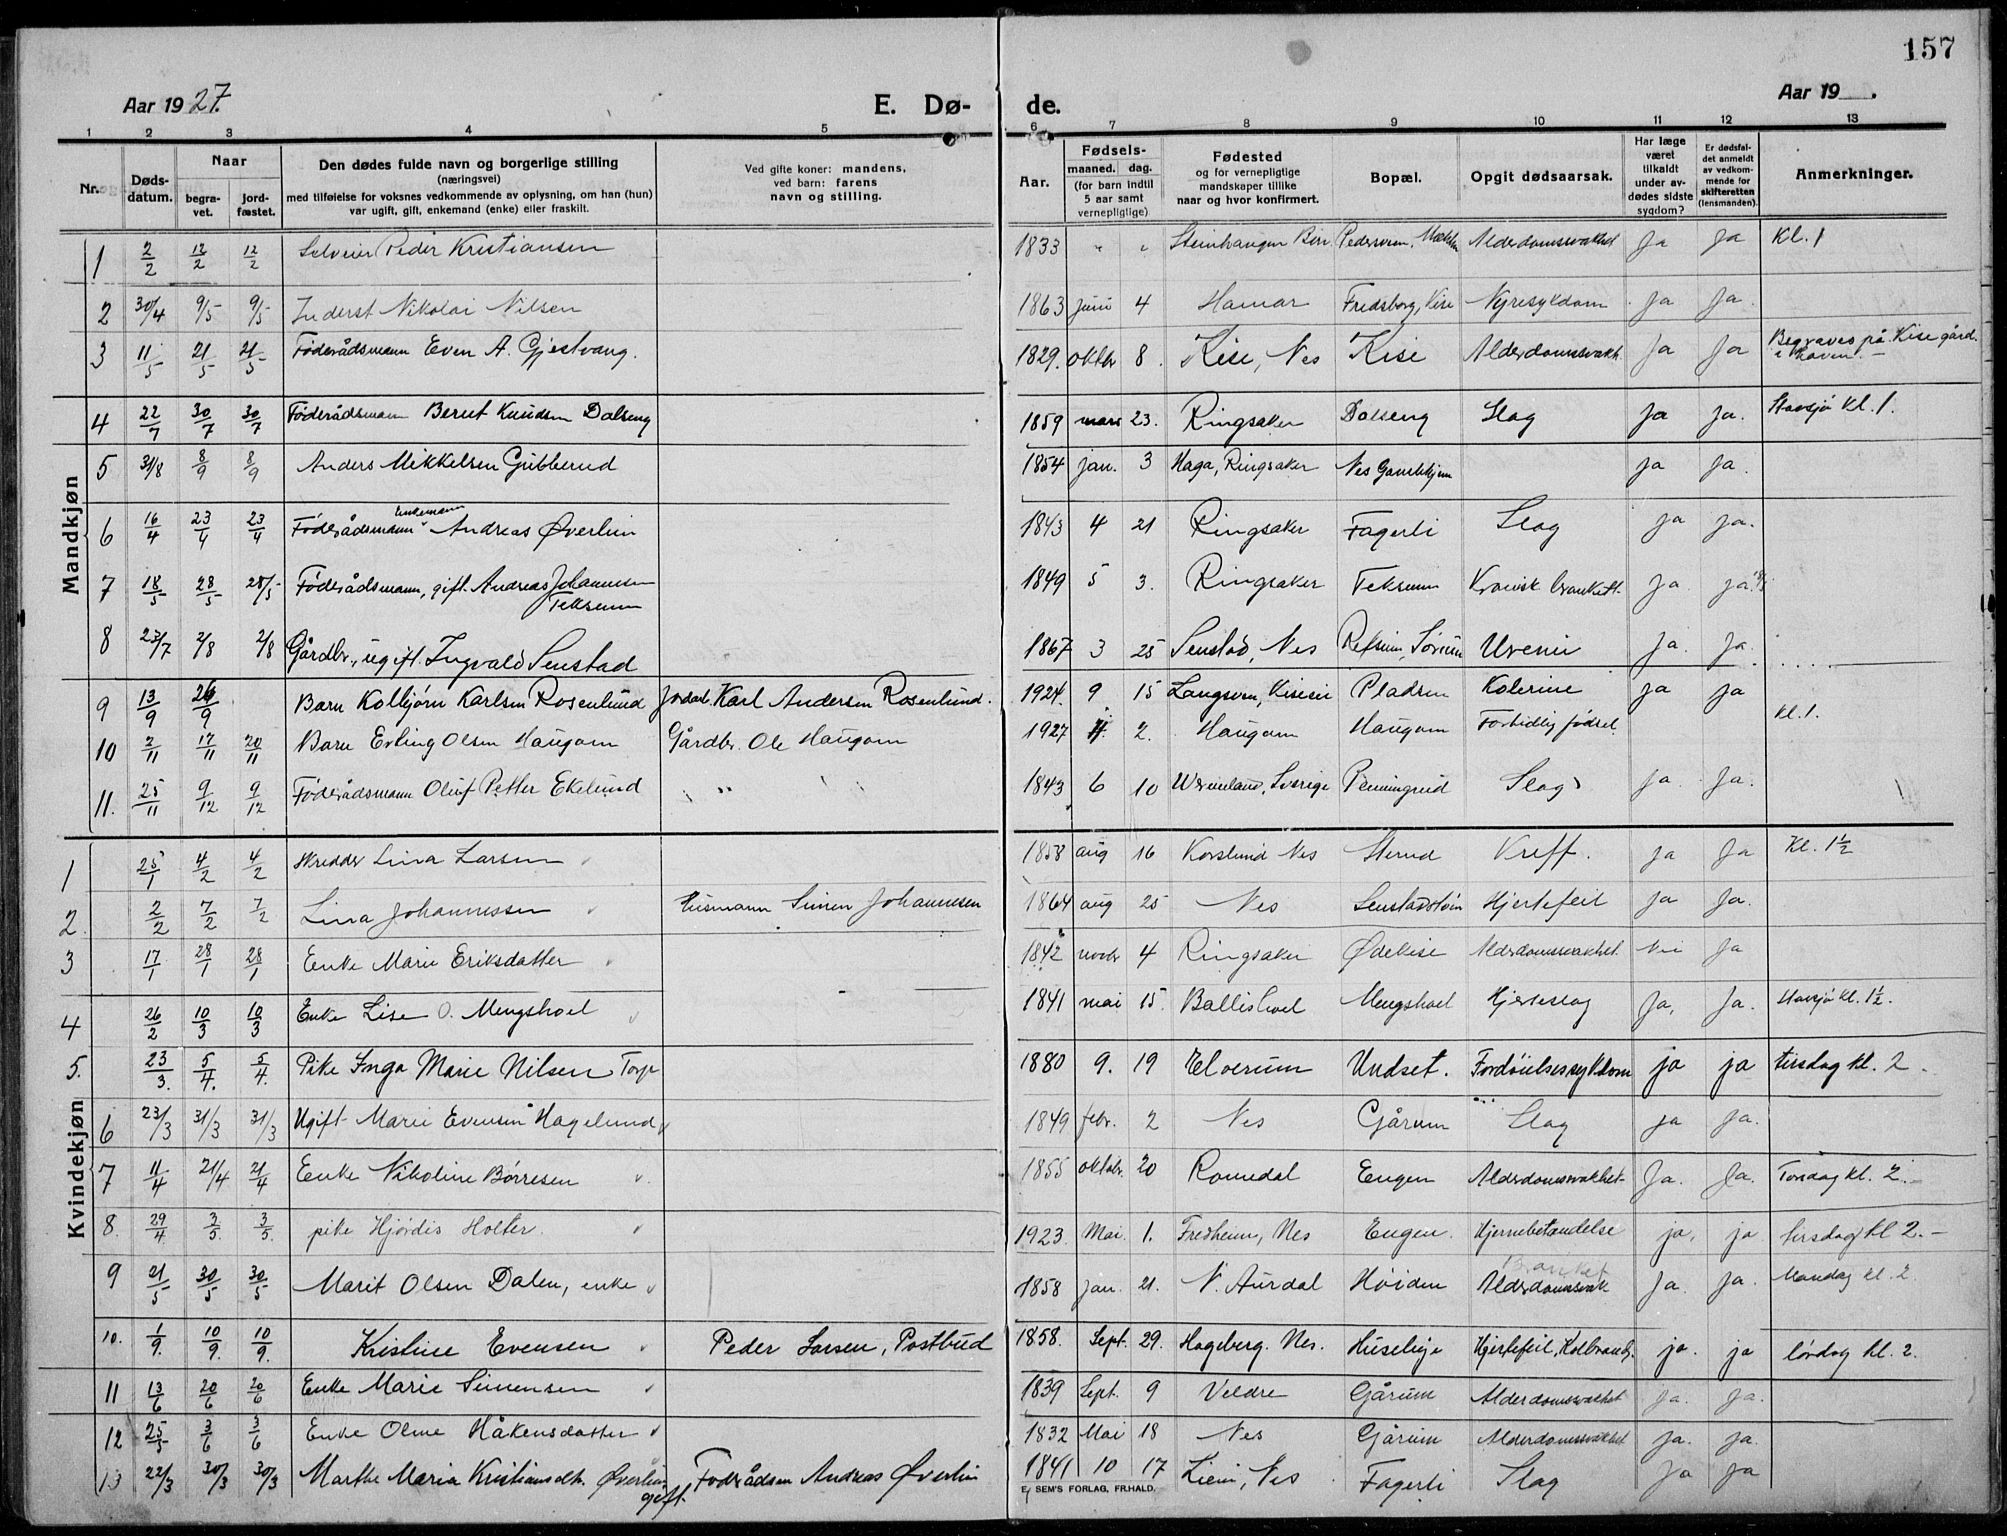 157
Aar 1927.
E. Dø-
de.
Aar 19 .
1 2 3 4 5 6 7 8 9 10 11 12 13
Nr.
Døds-datum.
Naar
begra-vet.
jord-fæstet.
Den dødes fulde navn og borgerlige stilling
(næringsvei)
med tilføielse for voksnes vedkommende av oplysning, om han (hun)
var ugift, gift, enkemand (enke) eller fraskilt.
Ved gifte koner: mandens,
ved barn: farens
navn og stilling.
Aar.
Fødsels-
maaned. dag.
(for barn indtil
5 aar samt
vernepligtige)
Fødested
og for vernepligtige
mandskaper tillike
naar og hvor konfirmert.
Bopæl.
Opgit dødsaarsak.
Har læge
været
tilkaldt
under av-
dødes sidste
sygdom?
Er dødsfal-
det anmeldt
av vedkom-
mende for
skifteretten
(lensmanden).
Anmerkninger.
Mandkjøn
1 2/2 12/2 12/2 Selveier Peder Kristiansen 1833 " " Steinhaugen Alderdomssvakhet Ja Ja Kl. 1
2 30/4 9/5 9/5 Inderst Nikolai Nilsen 1863 juni 4 Hamar Fredsborg, Kise Nyresykdom Ja Ja
3 11/5 21/5 21/5 Føderådsmann Even A. Gjestvang. 1829. oktbr 8. Kise, Nes Kise Alderdomssvakh. Ja Ja Begraves på Kise gård.
i haven -
4 22/7 30/7 30/7 Føderådsmann Bernt Knudsen Dalseng 1859 mars 23. Ringsaker Dalseng Slag Ja Ja. Stavsjø Kl. 1.
5 31/8 8/9 8/9 Anders Mikkelsen Gubberud 1854 jan. 3 Haga, Ringsaker Nes Gamlehjem ja Ja.
6 16/4 23/4 23/4 Føderådsmann Enkemann Andreas Øverlien 1843 4 21 Ringsaker Fagerli Slag ja ja.
7 18/5 28/5 28/5 Føderådsmann, gift. Andreas Johannesen
Teksum 1849 5 3. Ringsaker Teksum Kronisk bronkitt. ja ja
8 23/7 2/8 2/8 Gårdbr., ugift. Ingvald Senstad 1867 3 25 Senstad, Nes Uremi ja. ja.
9 13/9 26/9 Barn Kolbjørn Karlsen Rosenlund Jordarb. Karl Andersen Rosenlund. 1924. 9 15 Pladsen Kolerine ja ja
10 2/11 17/11 20/11 Barn Erling Olsen Haugom Gårdbr. Ole Haugom 1927 11. 2. Haugom Haugom Fortidlig fødsel Kl. 1.
11. 25/11 9/12 9/12 Føderådsmann Oluf Petter Ekelund " 1843 6 10 Wermland, Sverige Penningrud Slag ja. Ja.
Kvindekjøn
1 25/1 4/2 4/2 Skredder Lina Larsen 1858 aug 16 Korslund Nes Sterud Kreft. ja Ja Kl. 1½
2. 2/2 7/2 7/2 Lina Johannessen Husmann Simen Johannesen 1864 aug 25 Nes Hjertefeil ja Ja.
3 17/1 28/1 28/1 Enke Marie Eriksdatter 1842 novbr 4 Ringsaker Ødekise Alderdomssvakhet. Nei Ja
4 26/2 10/3 10/3 Enke Lise O. Mengshoel 1841 mai 15. Ballishoel Mengshoel Hjerteslag Ja, Ja. Stavsjø kl. 1½.
5. 23/3. 5/4. 5/4. Pike Inga Marie Nilsen Torp 1880 9. 19 Elverum Undset. Fordøielsessykdom ja ja tirsdag kl. 2.
6 23/3 31/3 31/3 Ugift Marie Evensen Hagelund 1849 febr. 2 Nes Gårum Slag ja ja.
7 11/4 21/4 21/4 Enke Nikoline Børresen 1855 oktobr. 20 Romedal Engen Alderdomssvakhet Ja. Ja. Torsdag kl. 2. -
8. 29/4 3/5 3/5. pike Hjørdis Holter. 1923. Mai. 1. Fredheim, Nes Engen. Hjernebetændelse ja, ja tirsdag kl 2. -
9 21/5 30/5 30/5 Marit Olsen Dalen, enke 1858 jan. 21. N. Aurdal Høiden Alderdomssvak Ja. Ja. Mandag kl. 2
10. 1/9. 10/9. 10/9. Kristine Evensen Peder Larsen, Postbud 1858. Sept. 29. Hageberg. Nes. Huselije Hjertefeil, ja. ja lørdag kl. 2.
11 13/6 20/6 20/6 Enke Marie Simensen 1839 Sept. 9 Veldre Gårum Alderdomssvakhet Ja. Ja.
12 25/5 3/6 3/6 Enke Oline Håkensdatter 1832 Mai 18 Nes Gårum Alderdomssvakhet Ja. Ja.
13 22/3 30/3 30/3 Marthe Maria Kristiansdtr. Øverlien
gift. Føderådsm Andreas Øverlien 1841 10 17 Liem, Nes Fagerli Slag Ja Ja
E. SEM'S FORLAG, FR.HALD.